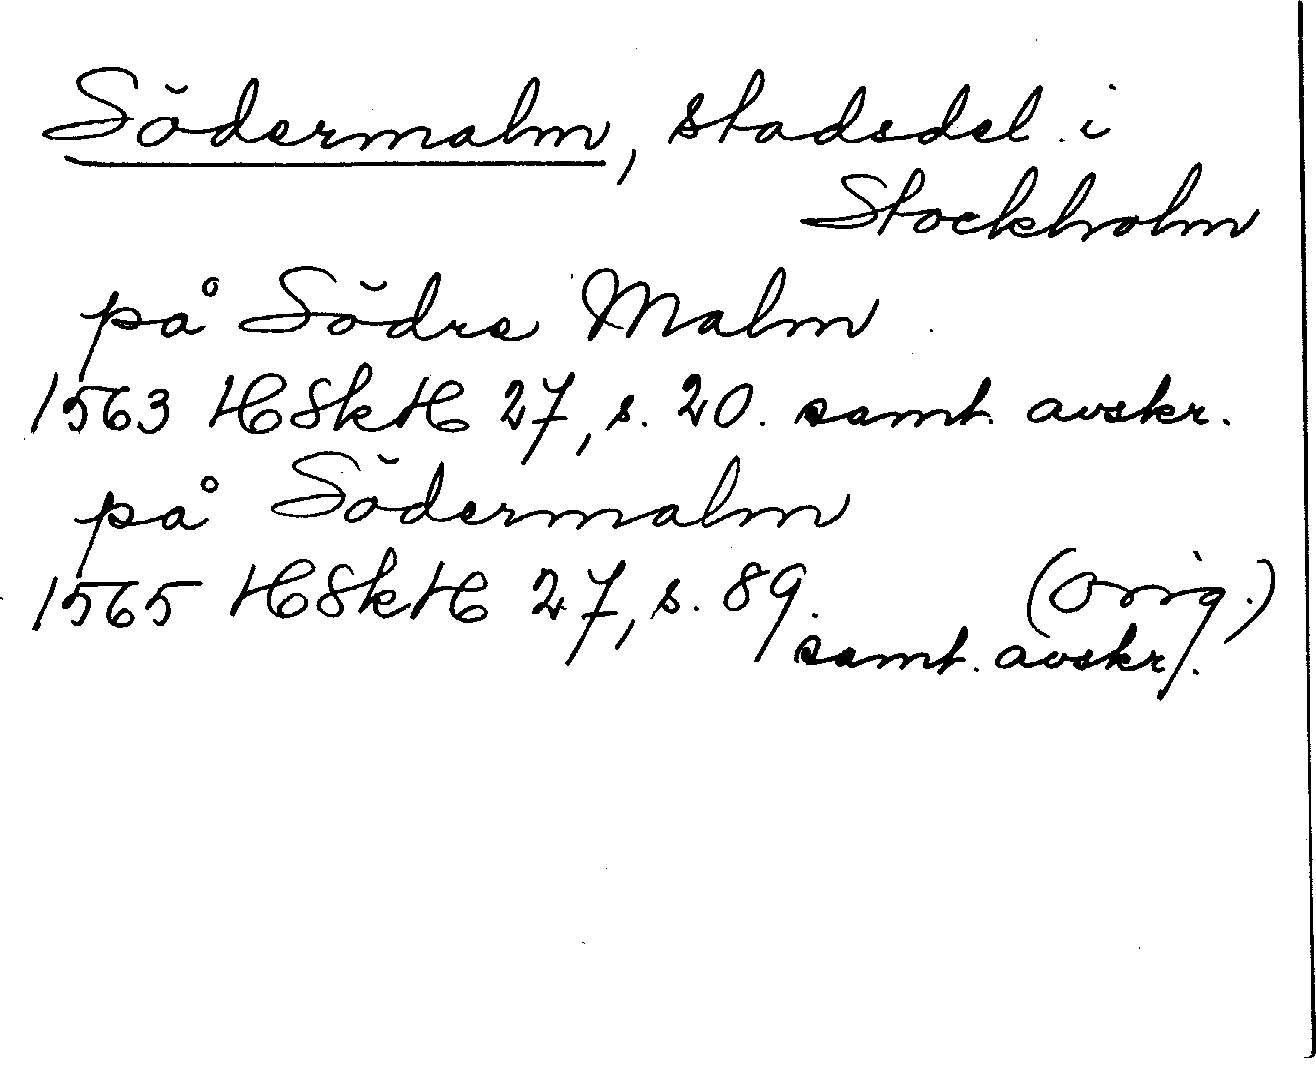 Södermalm, stadsdel i
Stockholm
på Södre Malm
1563 HSkH 27, s. 20. samt. avskr.
på Södermalm
1565 HSkH 27, s. 89. (Orig.)
samt. avskr.